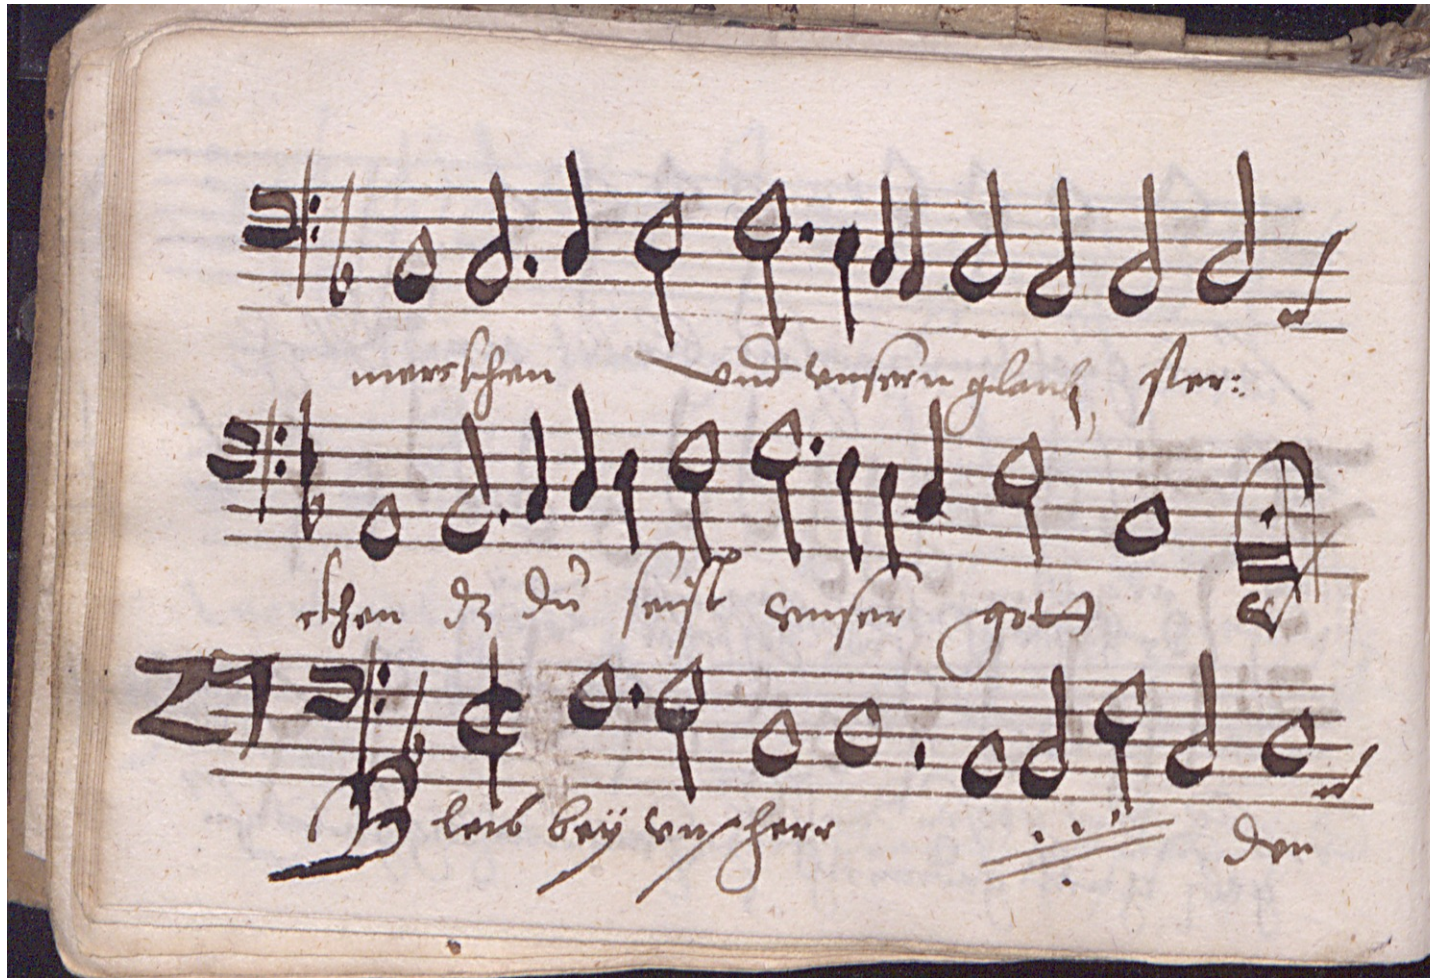 merckhen und unsern glaub ster:
ckhen dz du seist unser gott
21
Bleib bey uns herr den